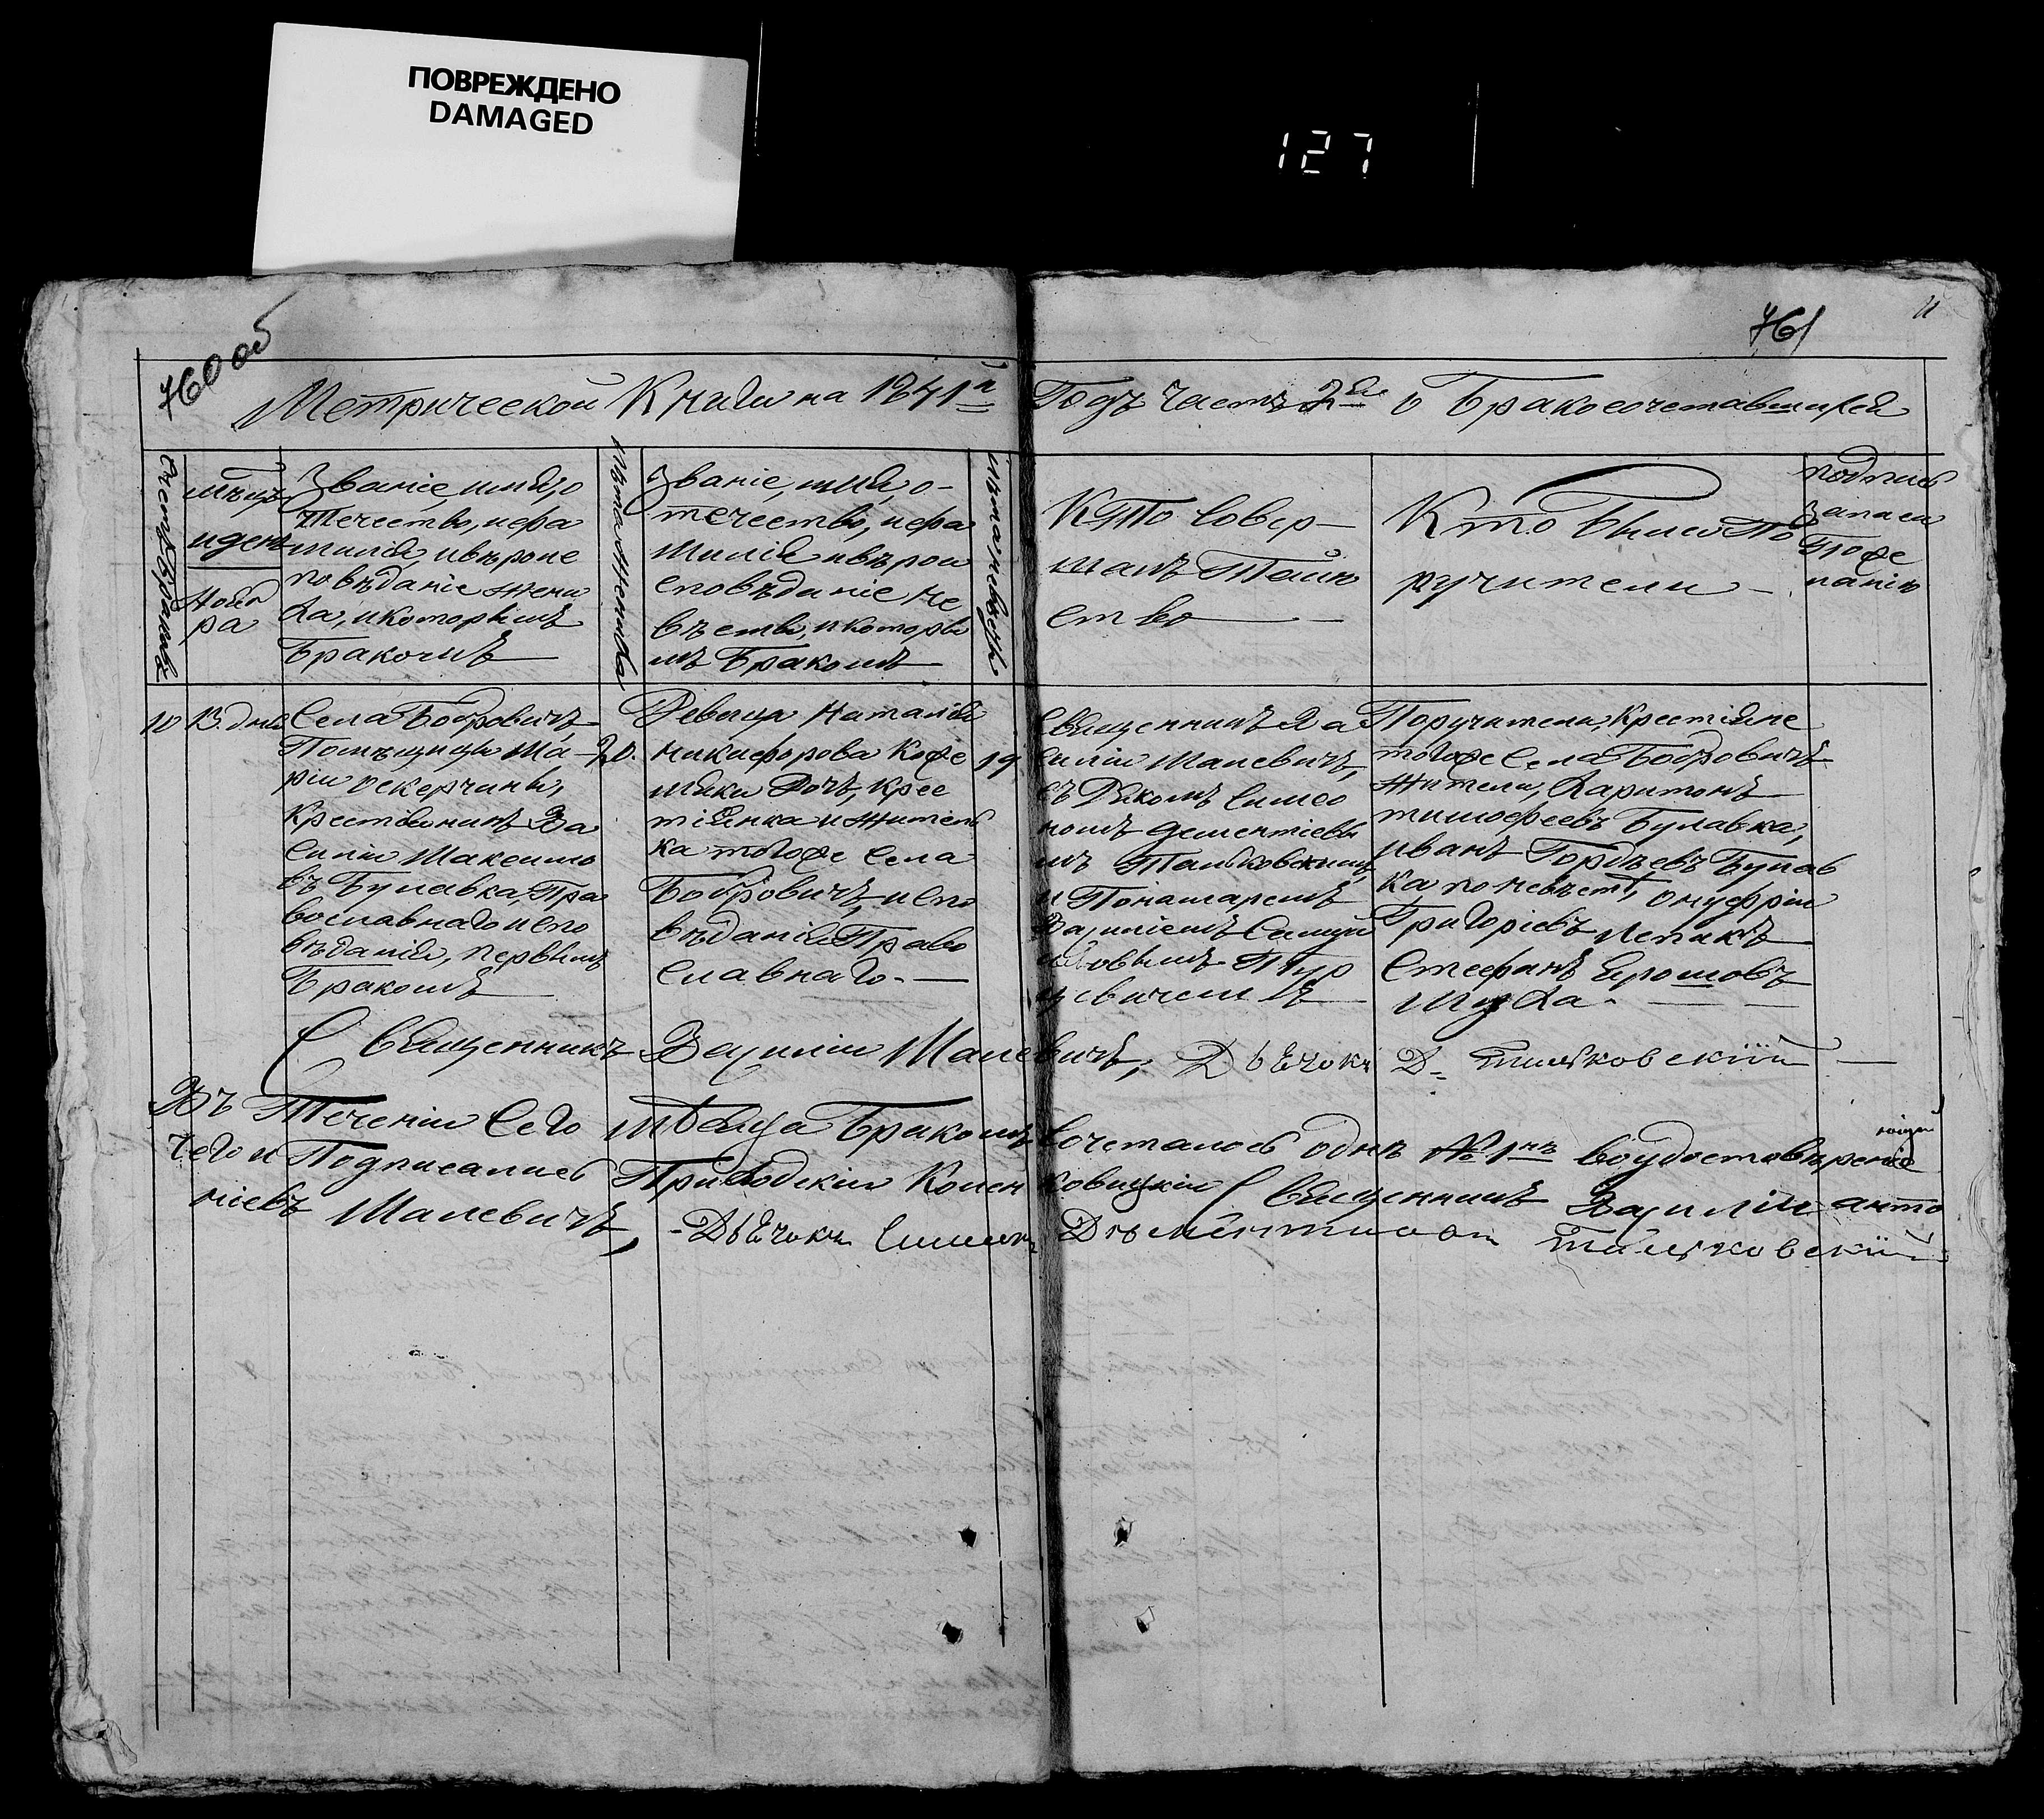 ПОВРЕЖДЕНО
DAMAGED
127
760 об
761
11
Метрической Книги на 1841й Годъ Часть 2я о Бракосочетавшихся
Счетъ Браковъ
мѣцъ
и день
Нояб
ра
Званіе, имя, о
течество, и фа
милія, и вѣроис
повѣданіе жени
ха, и которымъ
Бракомъ
Лѣта жениха
Званіе, имя, о-
течество, и фа
милія и вѣрои
сповѣданіе не
вѣсты, и которы
мъ Бракомъ
Лѣта невѣсты
Кто Совер-
шалъ Таин
ство
Кто Были По
ручители
подпись
Записи
По же
ланію
10
13. дня
Села Бобровичъ
Помѣщицы Ма-
ріи Оскерчины,
Крестьянинъ Ва
силій Максимо
въ Булавка, Пра
вославнаго испо
вѣданія, первымъ
Бракомъ
20.
Девица Наталія
Никифорова Коже
мяки Дочь, крес
тіянка и жителъ
ка тогоже Села
Бобровичъ, испо
вѣданія Право
славнаго.
19
Священникъ Ва
силій Малевичъ,
съ Дякомъ Симео
номъ Дементіевы
мъ Пашковскимъ
и Понамаремъ
Василіемъ Самуи
ловымъ Тур
цевичемъ
Поручители, Крестіяне
тогоже Села Бобровичъ
жители, Харитонъ
Тимофеевъ Булавка,
Иванъ Гордѣевъ Булав
ка, по невѣстѣ, Онуфрій
Григоріевъ Лепикъ
Стефанъ Ерошовъ
Муха.
Священникъ Василій Малевичъ, Дьячокъ
Въ Теченіи Сего Мѣсяца Бракомъ Сочеталось однъ №1нъ воудостовѣреніе
чего и Подписались Приходскій Священникъ Василій Анто
ніевъ Малевичъ, Дьячокъ